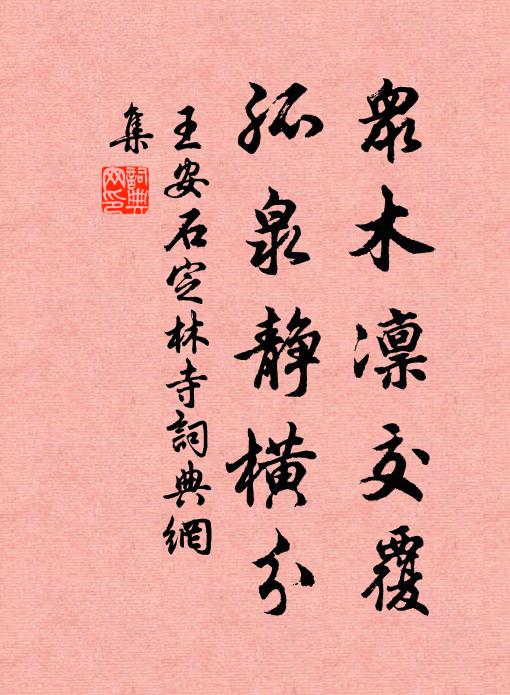 眾木凜交覆
孤泉靜橫分
王安石定林寺詞典網
集
詞典
网印